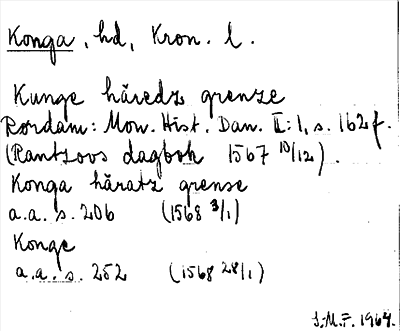 Konga, hd, Kron. l.
Kunge häredz grenze
Rördam: Mon. Hist. Dan. II:1, s. 162 f.
(Rantzovs dagbok 1567 10/12).
Konga häratz grense
a.a. s. 206 (1568 3/1)
Konge
a.a. s. 252 (1568 28/1)
J.M.F. 1964.